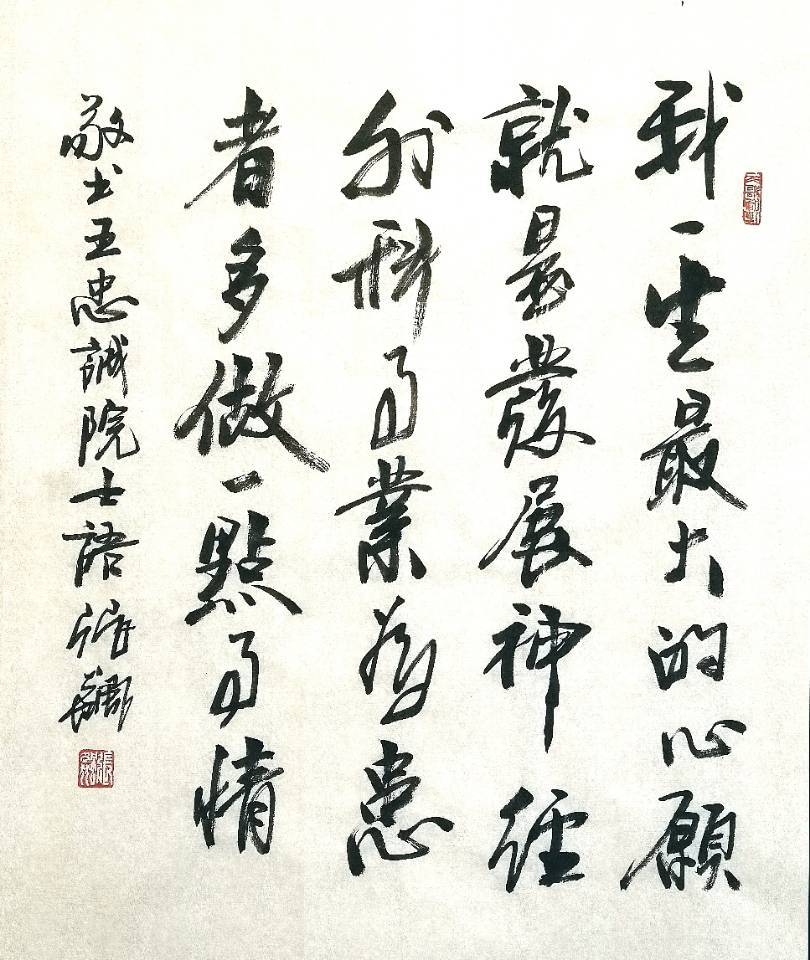 我一生最大的心願
就是發展神經
外科事業為患
者多做一點事情
敬书王忠誠院士語 張